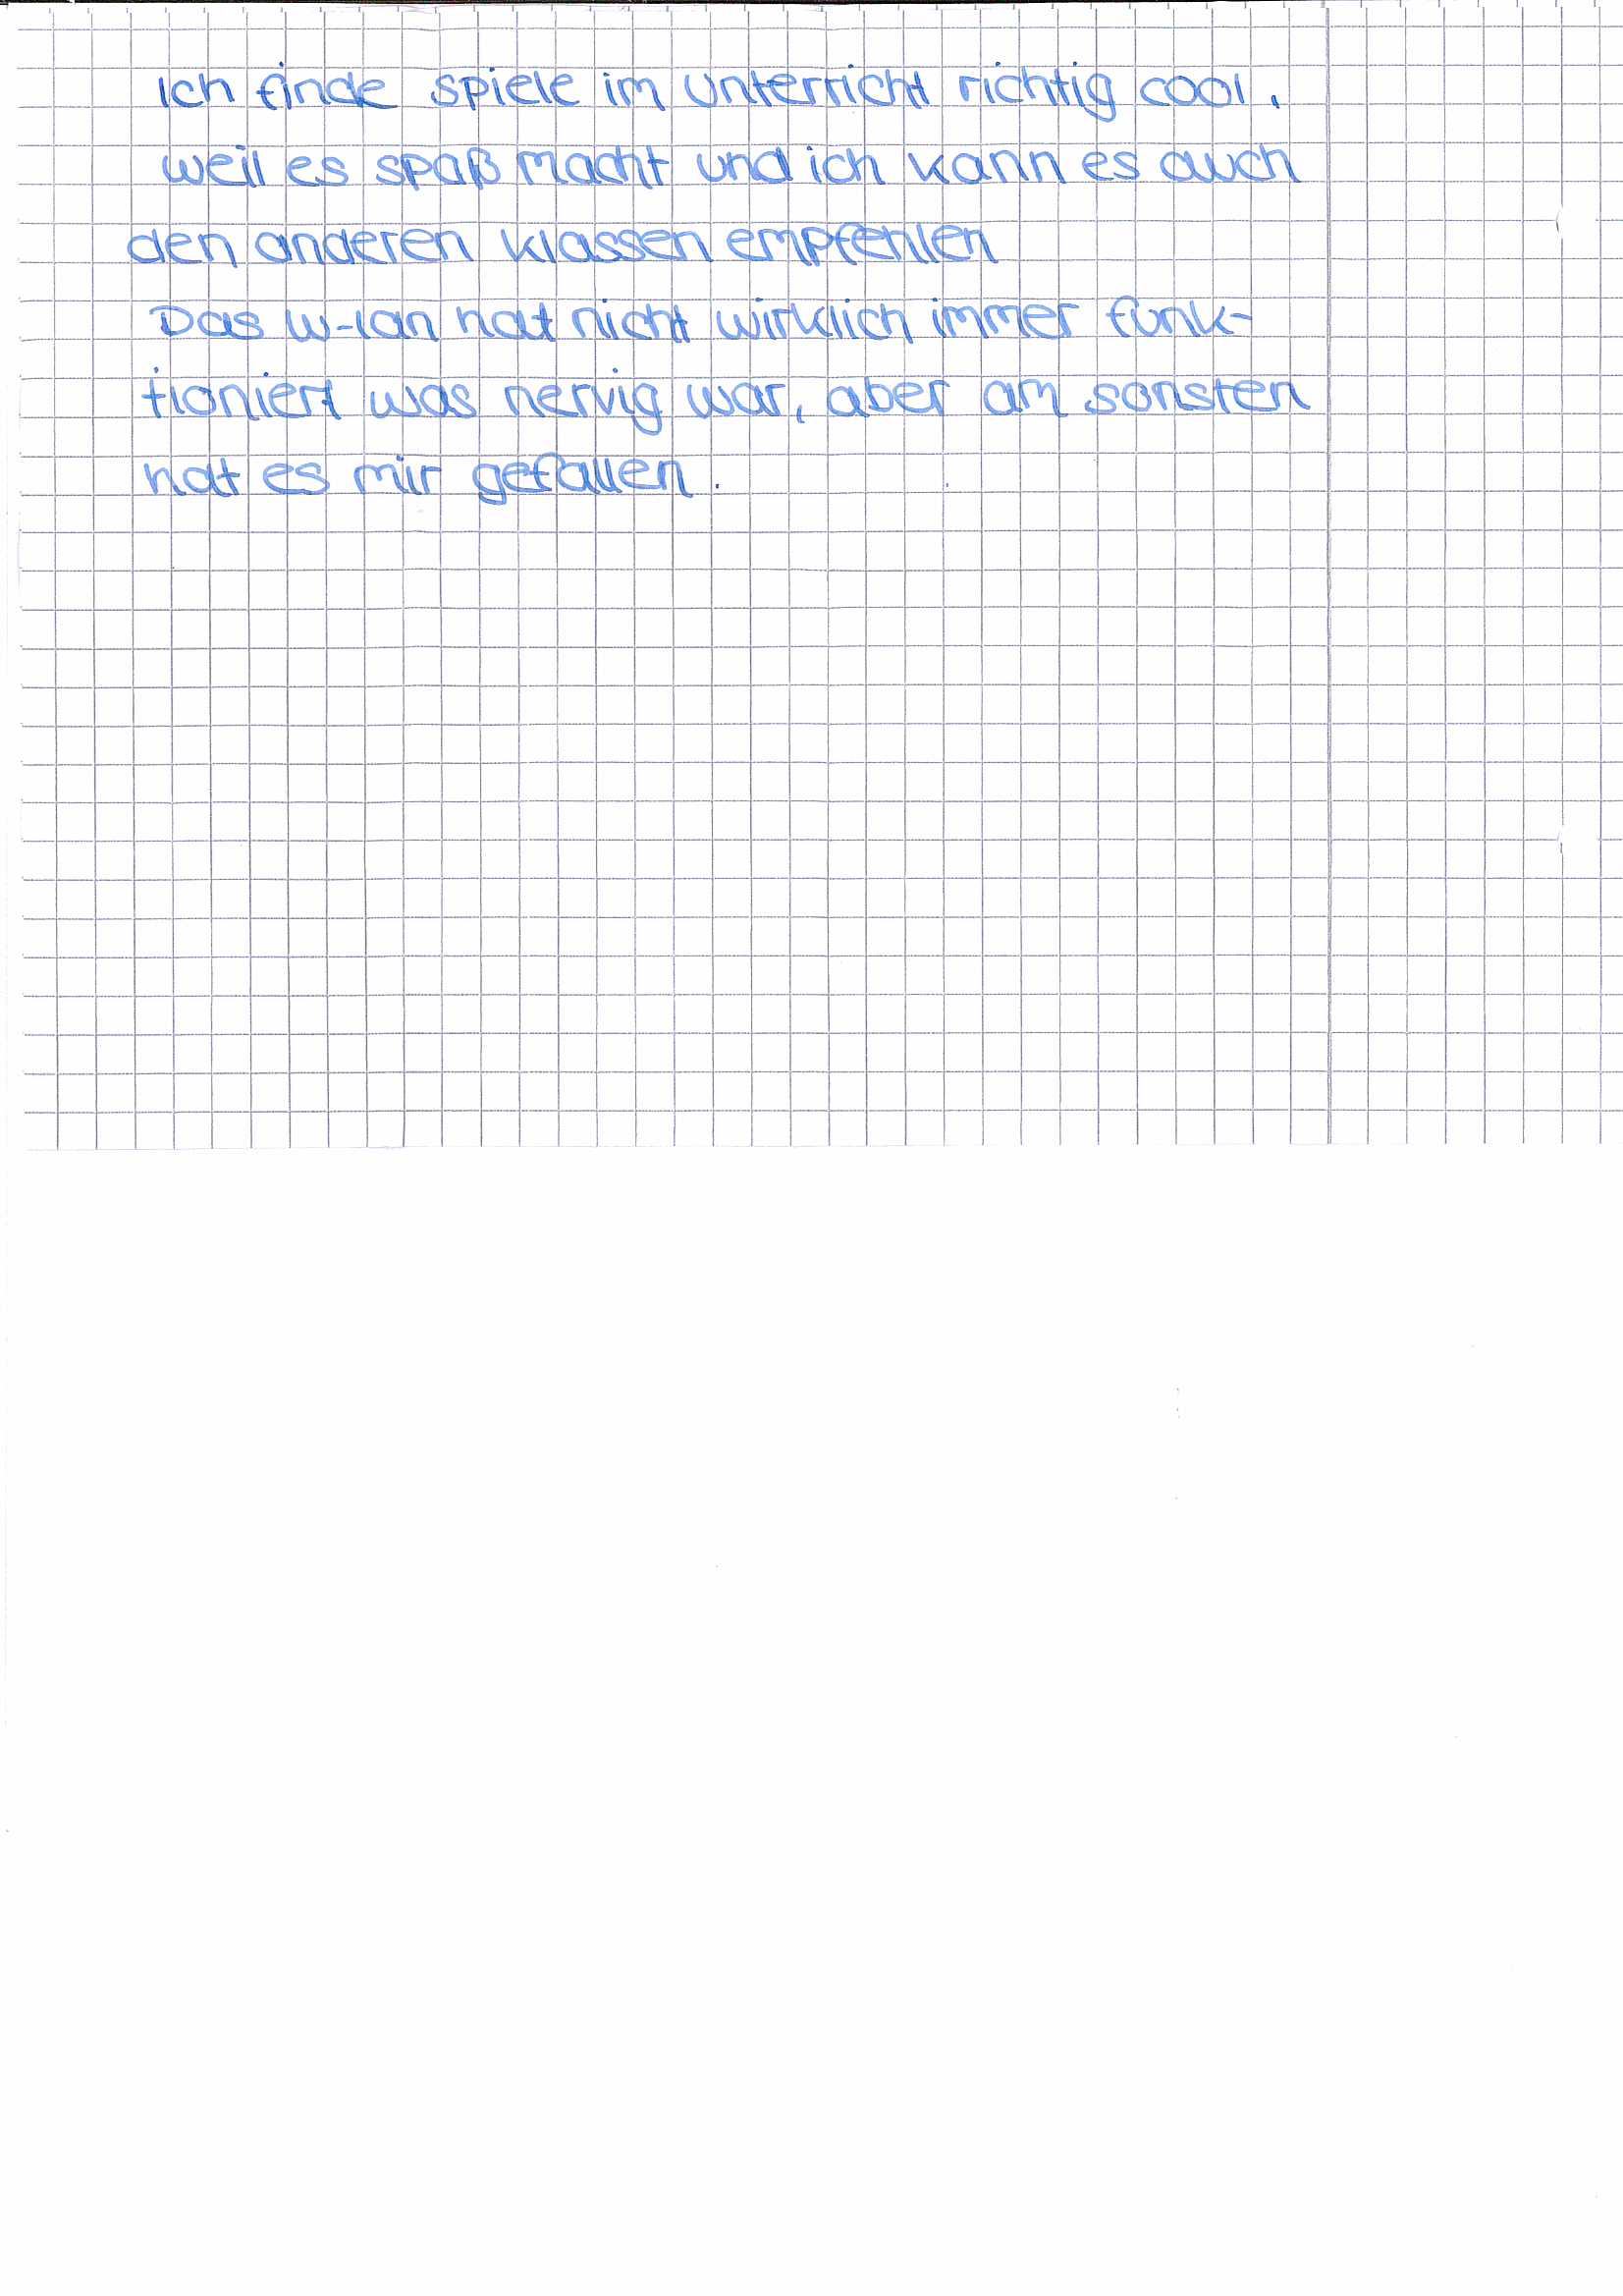 Ich finde spiele im Unterricht richtig cool.
weil es spaß macht und ich kann es auch
den anderen klassen empfehlen
Das W-lan hat nicht wirklich immer funk-
tioniert was nervig war, aber am sonsten
hat es mir gefallen.